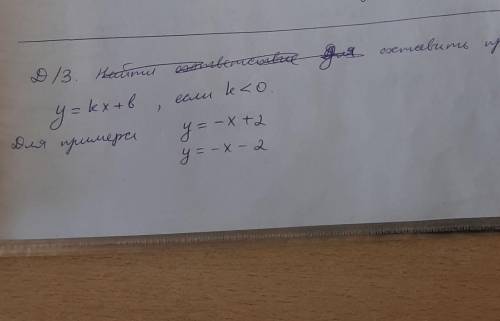 Д/З. Найти соответствие для составить пр
y = kx + b, если k < 0.
Для примера y = -x + 2
y = -x - 2